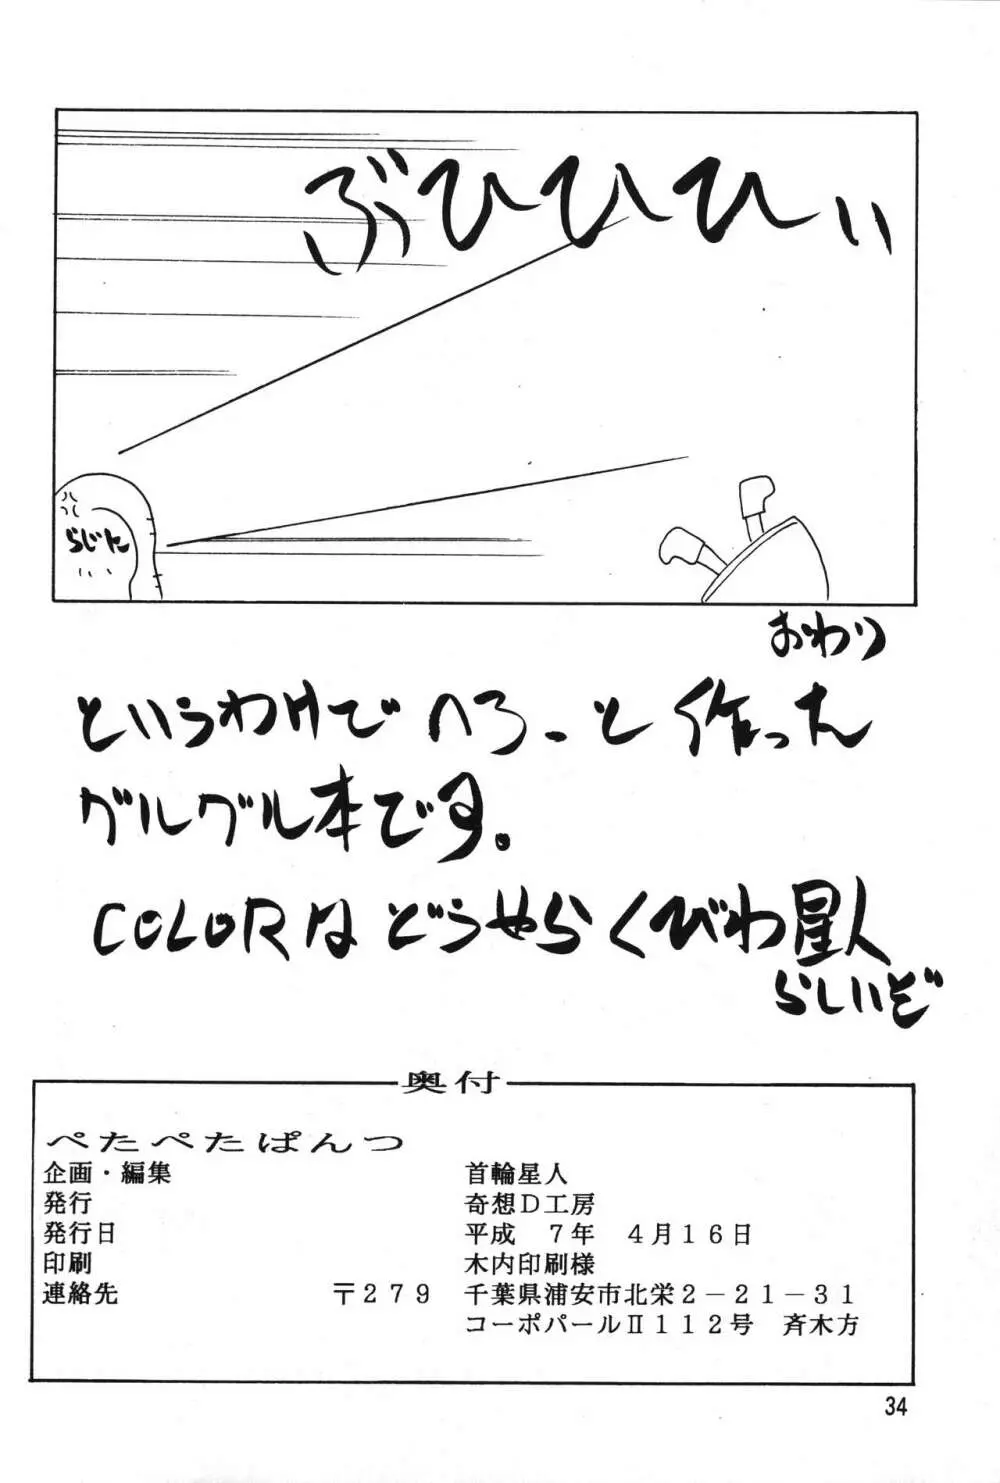 ぶひひひぃ
らじた
おわり
というわけでへろーと作った
グルグル本です。
COLORはどうやらくびわ星人
らしいぞ
奥付
ぺたぺたぱんつ
企画・編集 首輪星人
発行 奇想D工房
発行日 平成 7年 4月16日
印刷 木内印刷様
連絡先 〒279 千葉県浦安市北栄2-21-31
コーポパールⅡ112号 斉木方
34